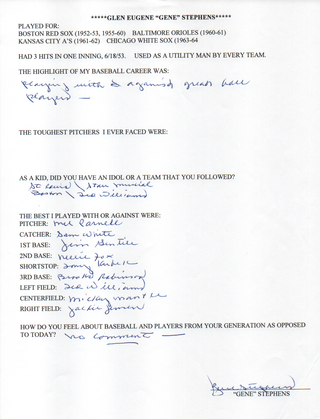 *****GLEN EUGENE "GENE" STEPHENS*****
PLAYED FOR:
BOSTON RED SOX (1952-53, 1955-60) BALTIMORE ORIOLES (1960-61)
KANSAS CITY A'S (1961-62) CHICAGO WHITE SOX (1963-64
HAD 3 HITS IN ONE INNING, 6/18/53. USED AS A UTILITY MAN BY EVERY TEAM.
THE HIGHLIGHT OF MY BASEBALL CAREER WAS:
Playing with & against great ball
players —
THE TOUGHEST PITCHERS I EVER FACED WERE:
AS A KID, DID YOU HAVE AN IDOL OR A TEAM THAT YOU FOLLOWED?
St Louis \ Stan Musial
Boston \ Ted Williams
THE BEST I PLAYED WITH OR AGAINST WERE:
PITCHER: Mel Parnell
CATCHER: Sam White
1ST BASE: Jim Gentile
2ND BASE: Nellie Fox
SHORTSTOP: Tony Kubek
3RD BASE: Brooks Robinson
LEFT FIELD: Ted Williams
CENTERFIELD: Mickey Mantle
RIGHT FIELD: Jackie Jensen
HOW DO YOU FEEL ABOUT BASEBALL AND PLAYERS FROM YOUR GENERATION AS OPPOSED
TO TODAY? No comment —
Gene Stephens
"GENE" STEPHENS